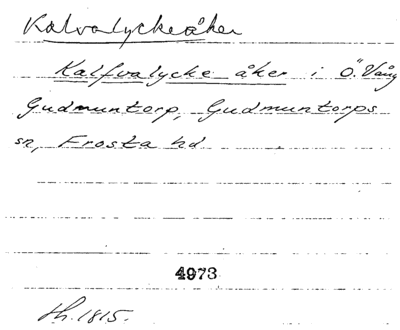 Kalvalyckeåker
Kalfvalycke åker i Ö. Vång
Gudmuntorp, Gudmuntorps
sn, Frosta hd
4973
Lh. 1815.